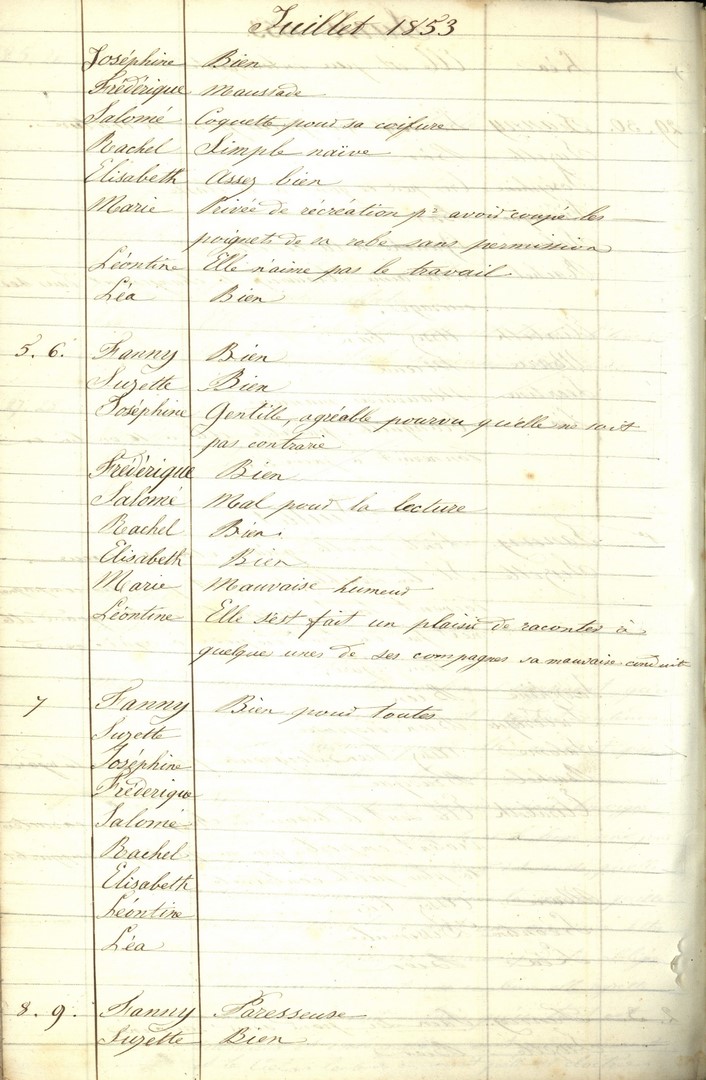 Juillet 1853
Joséphine Bien
Frédérique Maussade
Salomé Coquette pour sa coifure
Rachel Simple naïve
Elisabeth Assez bien
Marie Privée de récréation pr avoir coupé les
poignets de sa robe sans permission
Léontine Elle n'aime pas le travail.
Léa Bien
5. 6. Fanny Bien
Suzette Bien
Joséphine Gentille, agréable pourvu qu'elle ne soit
pas contrarie
Frédérique Bien
Salomé Mal pour la lecture
Rachel Bien.
Elisabeth Bien
Marie Mauvaise humeur
Léontine Elle s'est fait un plaisir de raconter à
quelque unes de ses compagnes sa mauvaise conduit
7 Fanny Bien pour toutes
Suzette
Joséphine
Fréderique
Salomé
Rachel
Elisabeth
Léontine
Léa
8. 9. Fanny Paresseuse
Suzette Bien